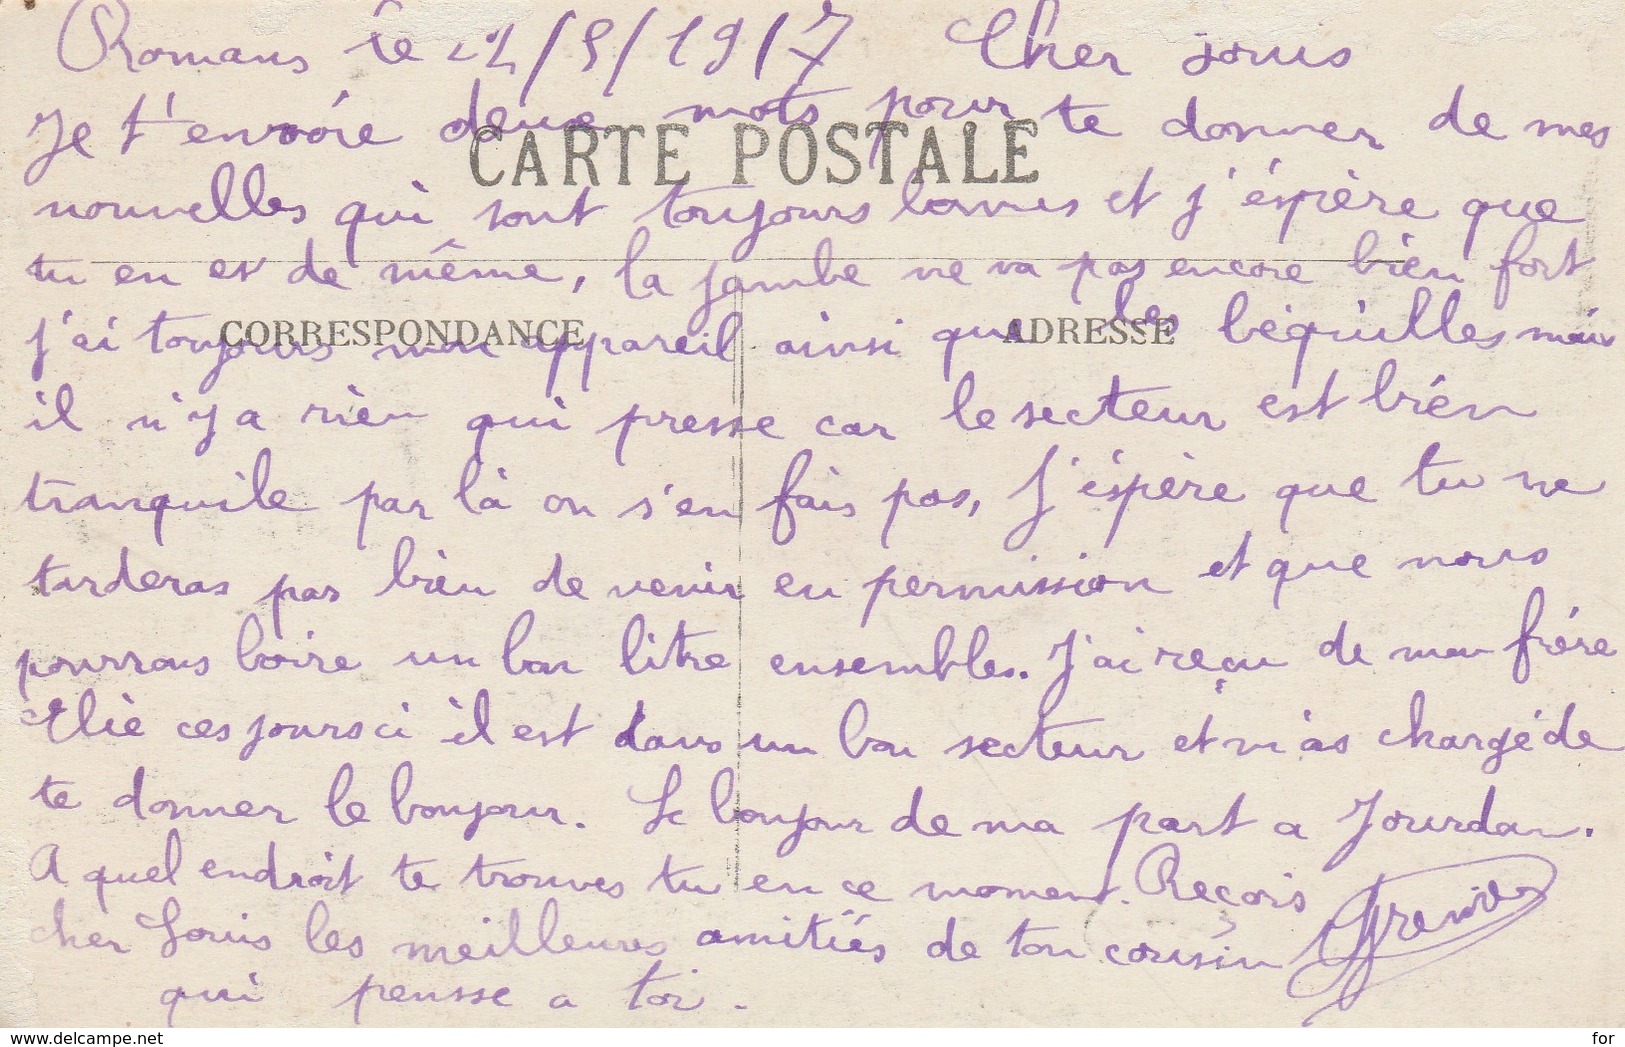 Romans le 22/5/1917 Cher
Je t'envoie deux mots pour te donner de mes
CARTE POSTALE
nouvelles qui sont toujours bonnes et j'éspère que
tu en es de même, la jambe ne va pas encore bien fort
CORRESPONDANCE ADRESSE
j'ai toujours mon appareil ainsi que les béquilles mais
il n'y a rien qui presse car le secteur est bien
tranquile par là on s'en fais pas, J'éspère que tu ne
tarderas pas bien de venir en permission et que nous
pourrons boire un bon litre ensembles. J'ai reçu de mon frére
Elie ces jours ci il est dans un bon secteur et m'as chargé de
te donner le bonjour. Le bonjour de ma part a Jourdan.
A quel endroit te trouves tu en ce moment. Reçois
cher Louis les meilleures amitiés de ton cousin
qui pensse a toi.
www.delcampe.net for